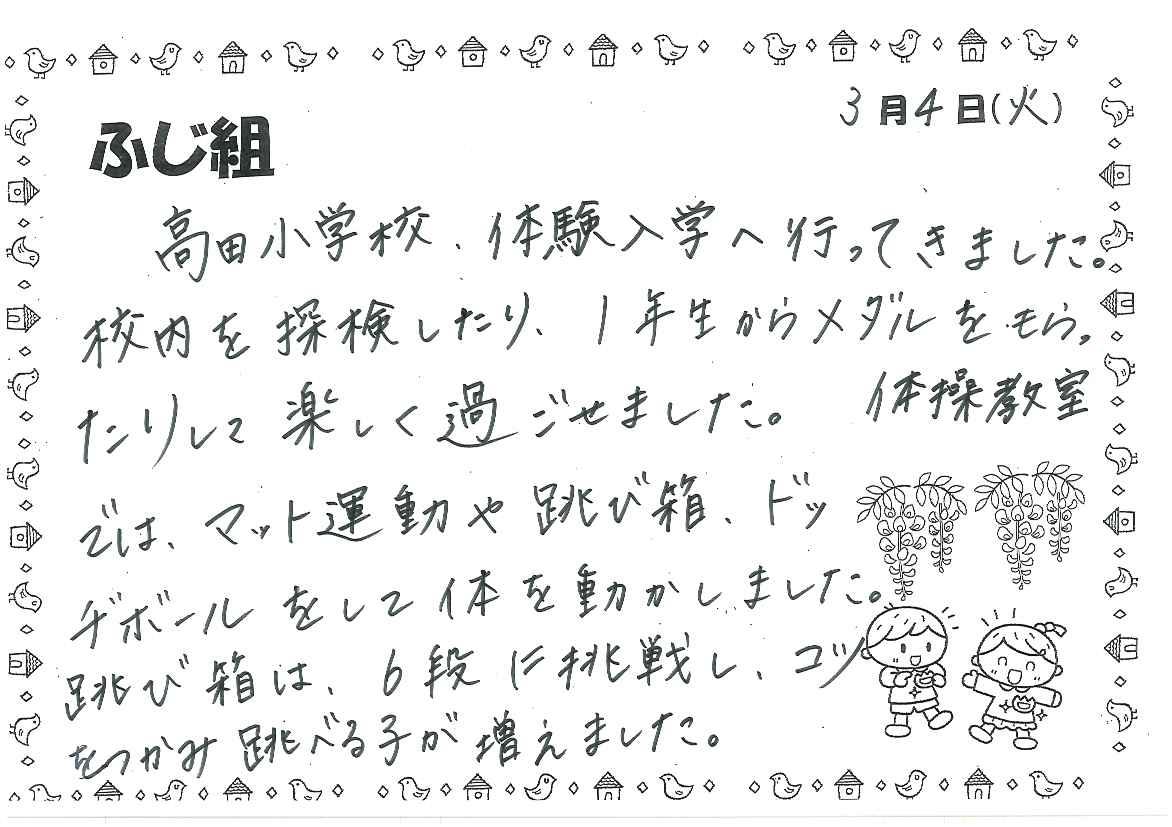 3月4日(火)
ふじ組
高田小学校、体験入学へ行ってきました。
校内を探検したり、1年生からメダルをもらっ
たりして楽しく過ごせました。体操教室
では、マット運動や跳び箱、ドッ
ヂボールをして体を動かしました。
跳び箱は、6段に挑戦し、コツ
をつかみ跳べる子が増えました。